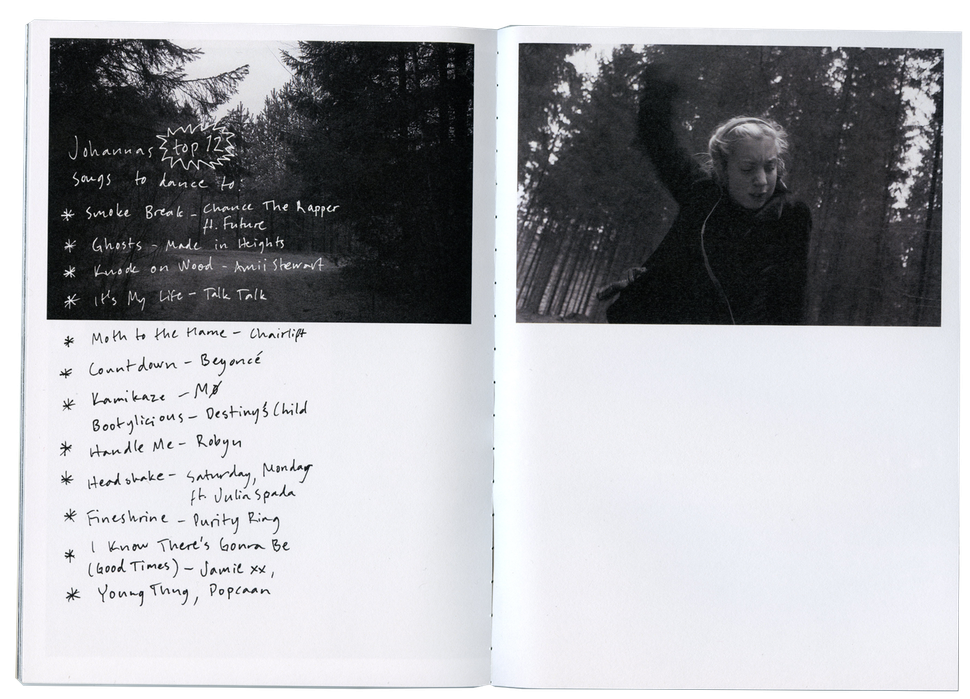 Johannas top 12
songs to dance to:
* Smoke Break - Chance The Rapper
ft. Future
* Ghosts - Made in Heights
* Knock on Wood - Amii Stewart
* It's My Life - Talk Talk
* Moth to the Flame - Chairlift
* Countdown - Beyoncé
* Kamikaze - MØ
Bootylicious - Destiny's Child
* Handle Me - Robyn
* Headshake - Saturday, Monday
ft. Julia Spada
* Fineshrine - Purity Ring
* I Know There's Gonna Be
(Good Times) - Jamie xx,
* Young Thug, Popcaan